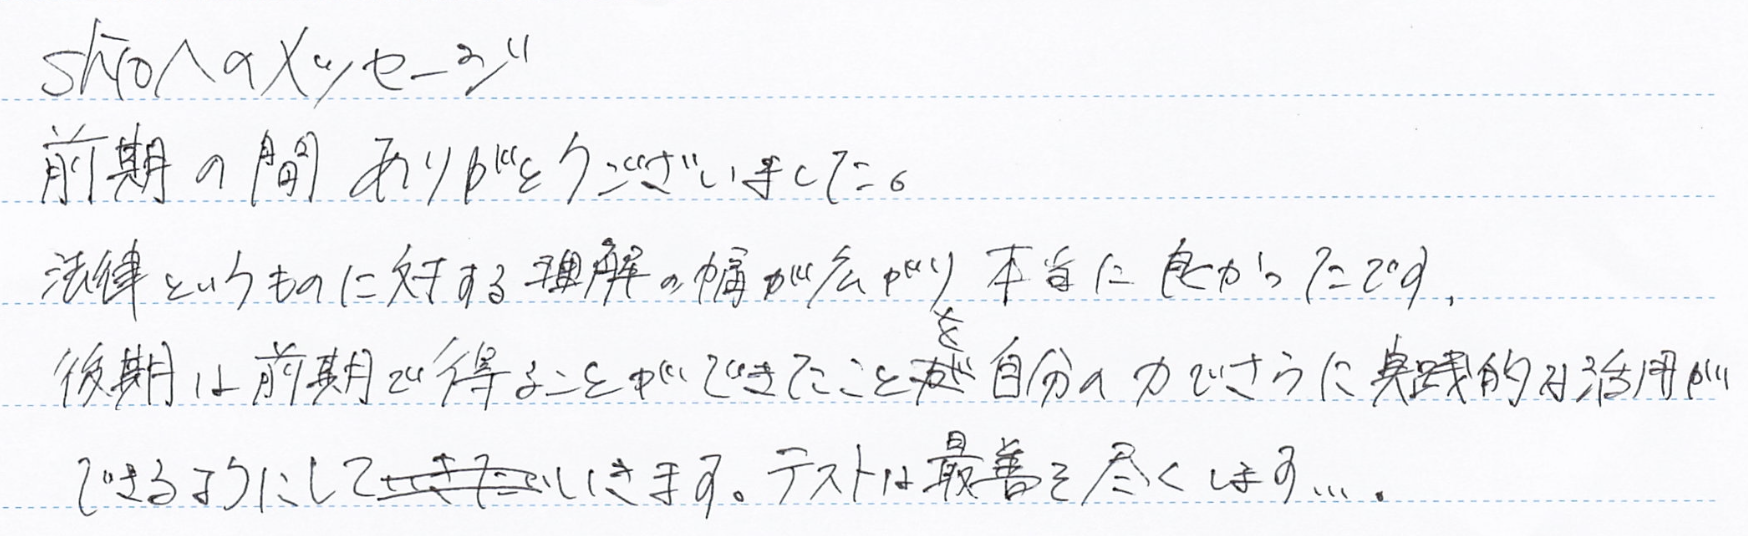 shiroへのメッセージ
前期の間ありがとうございました。
法律というものに対する理解の幅が広がり本当に良かったです。
後期は前期で得ることができたことを自分の力でさらに実践的な活用が
できるようにしていきます。テストは最善を尽くします…。